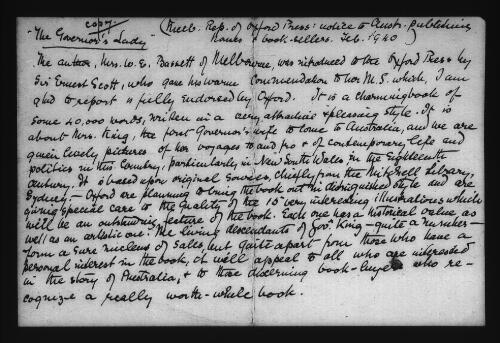 copy
(Melb. Rep. of Oxford Press: notice to Austr. publishing
"The Governor's Lady" houses & book-sellers. Feb. 1940)
The author, Mrs. W. E. Bassett of Melbourne, was introduced to the Oxford Press by
Sir Ernest Scott, who gave his warm commendation to her M.S. which, I am
glad to report is fully endorsed by Oxford. It is a charming book of
some 40,000 words, written in a very attractive & pleasing style. It is
about Mrs. King, the first Governor's wife to come to Australia, and we are
given lively pictures of her voyages to and fro & of contemporary life and
politics in this Country, particularly in New South Wales, in the Eighteenth
Century. It is based upon original sources, chiefly from the Mitchell Library,
Sydney. — Oxford are planning to bring the book out in distinguished style and are
giving special care to the quality of the 15 very interesting illustrations which
will be an outstanding feature of the book. Each one has a historical value as
well as an artistic one. The living descendants of Gov. King — quite a number —
form a sure nucleus of sales, but quite apart from those who have a
personal interest in the book, it will appeal to all who are interested
in the story of Australia, & to those discerning book-buyers who re-
cognize a really worth-while book.